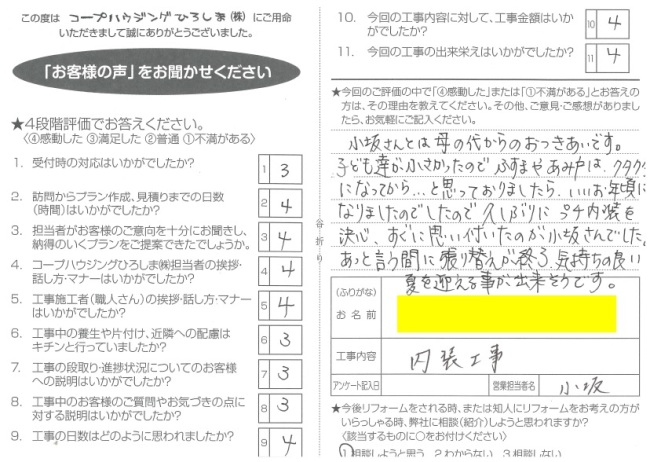 この度は コープハウジングひろしま(株) にご用命
いただきまして誠にありがとうございました。
「お客様の声」をお聞かせください
★4段階評価でお答えください。
〈④感動した ③満足した ②普通 ①不満がある〉
1. 受付時の対応はいかがでしたか?
1 3
2. 訪問からプラン作成、見積りまでの日数
(時間)はいかがでしたか?
2 4
3. 担当者がお客様のご意向を十分にお聞きし、
納得のいくプランをご提案できたでしょうか。
3 4
4. コープハウジングひろしま㈱担当者の挨拶・
話し方・マナーはいかがでしたか?
4 4
5. 工事施工者(職人さん)の挨拶・話し方・マナー
はいかがでしたか?
5 4
6. 工事中の養生や片付け、近隣への配慮は
キチンと行っていましたか?
6 3
7. 工事の段取り・進捗状況についてのお客様
への説明はいかがでしたか?
7 3
8. 工事中のお客様のご質問やお気づきの点に
対する説明はいかがでしたか?
8 3
9. 工事の日数はどのように思われましたか?
9 4
谷折り
10. 今回の工事内容に対して、工事金額はいか
がでしたか?
10 4
11. 今回の工事の出来栄えはいかがでしたか?
11 4
★今回のご評価の中で「④感動した」または「①不満がある」とお答えの
方は、その理由を教えてください。その他、ご意見・ご感想がありまし
たら、お気軽にご記入ください。
小坂さんとは母の代からのおつきあいです。
子ども達が小さかったので ふすまやあみ戸は、クタクタ
になってから…と思っておりましたら、いいお年頃に
なりましたのでしたので 久しぶりに プチ内装を
決心、すぐに思い付いたのが小坂さんでした。
あっと言う間に張り替えが終了、気持ちの良い
夏を迎える事が出来そうです。
(ふりがな)
お名前
工事内容 内装工事
アンケート記入日 営業担当者名 小坂
★今後リフォームをされる時、または知人にリフォームをお考えの方が
いらっしゃる時、弊社に相談(紹介)しようと思われますか?
〈該当するものに○をお付けください〉
1 相談しようと思う 2 わからない 3 相談しない